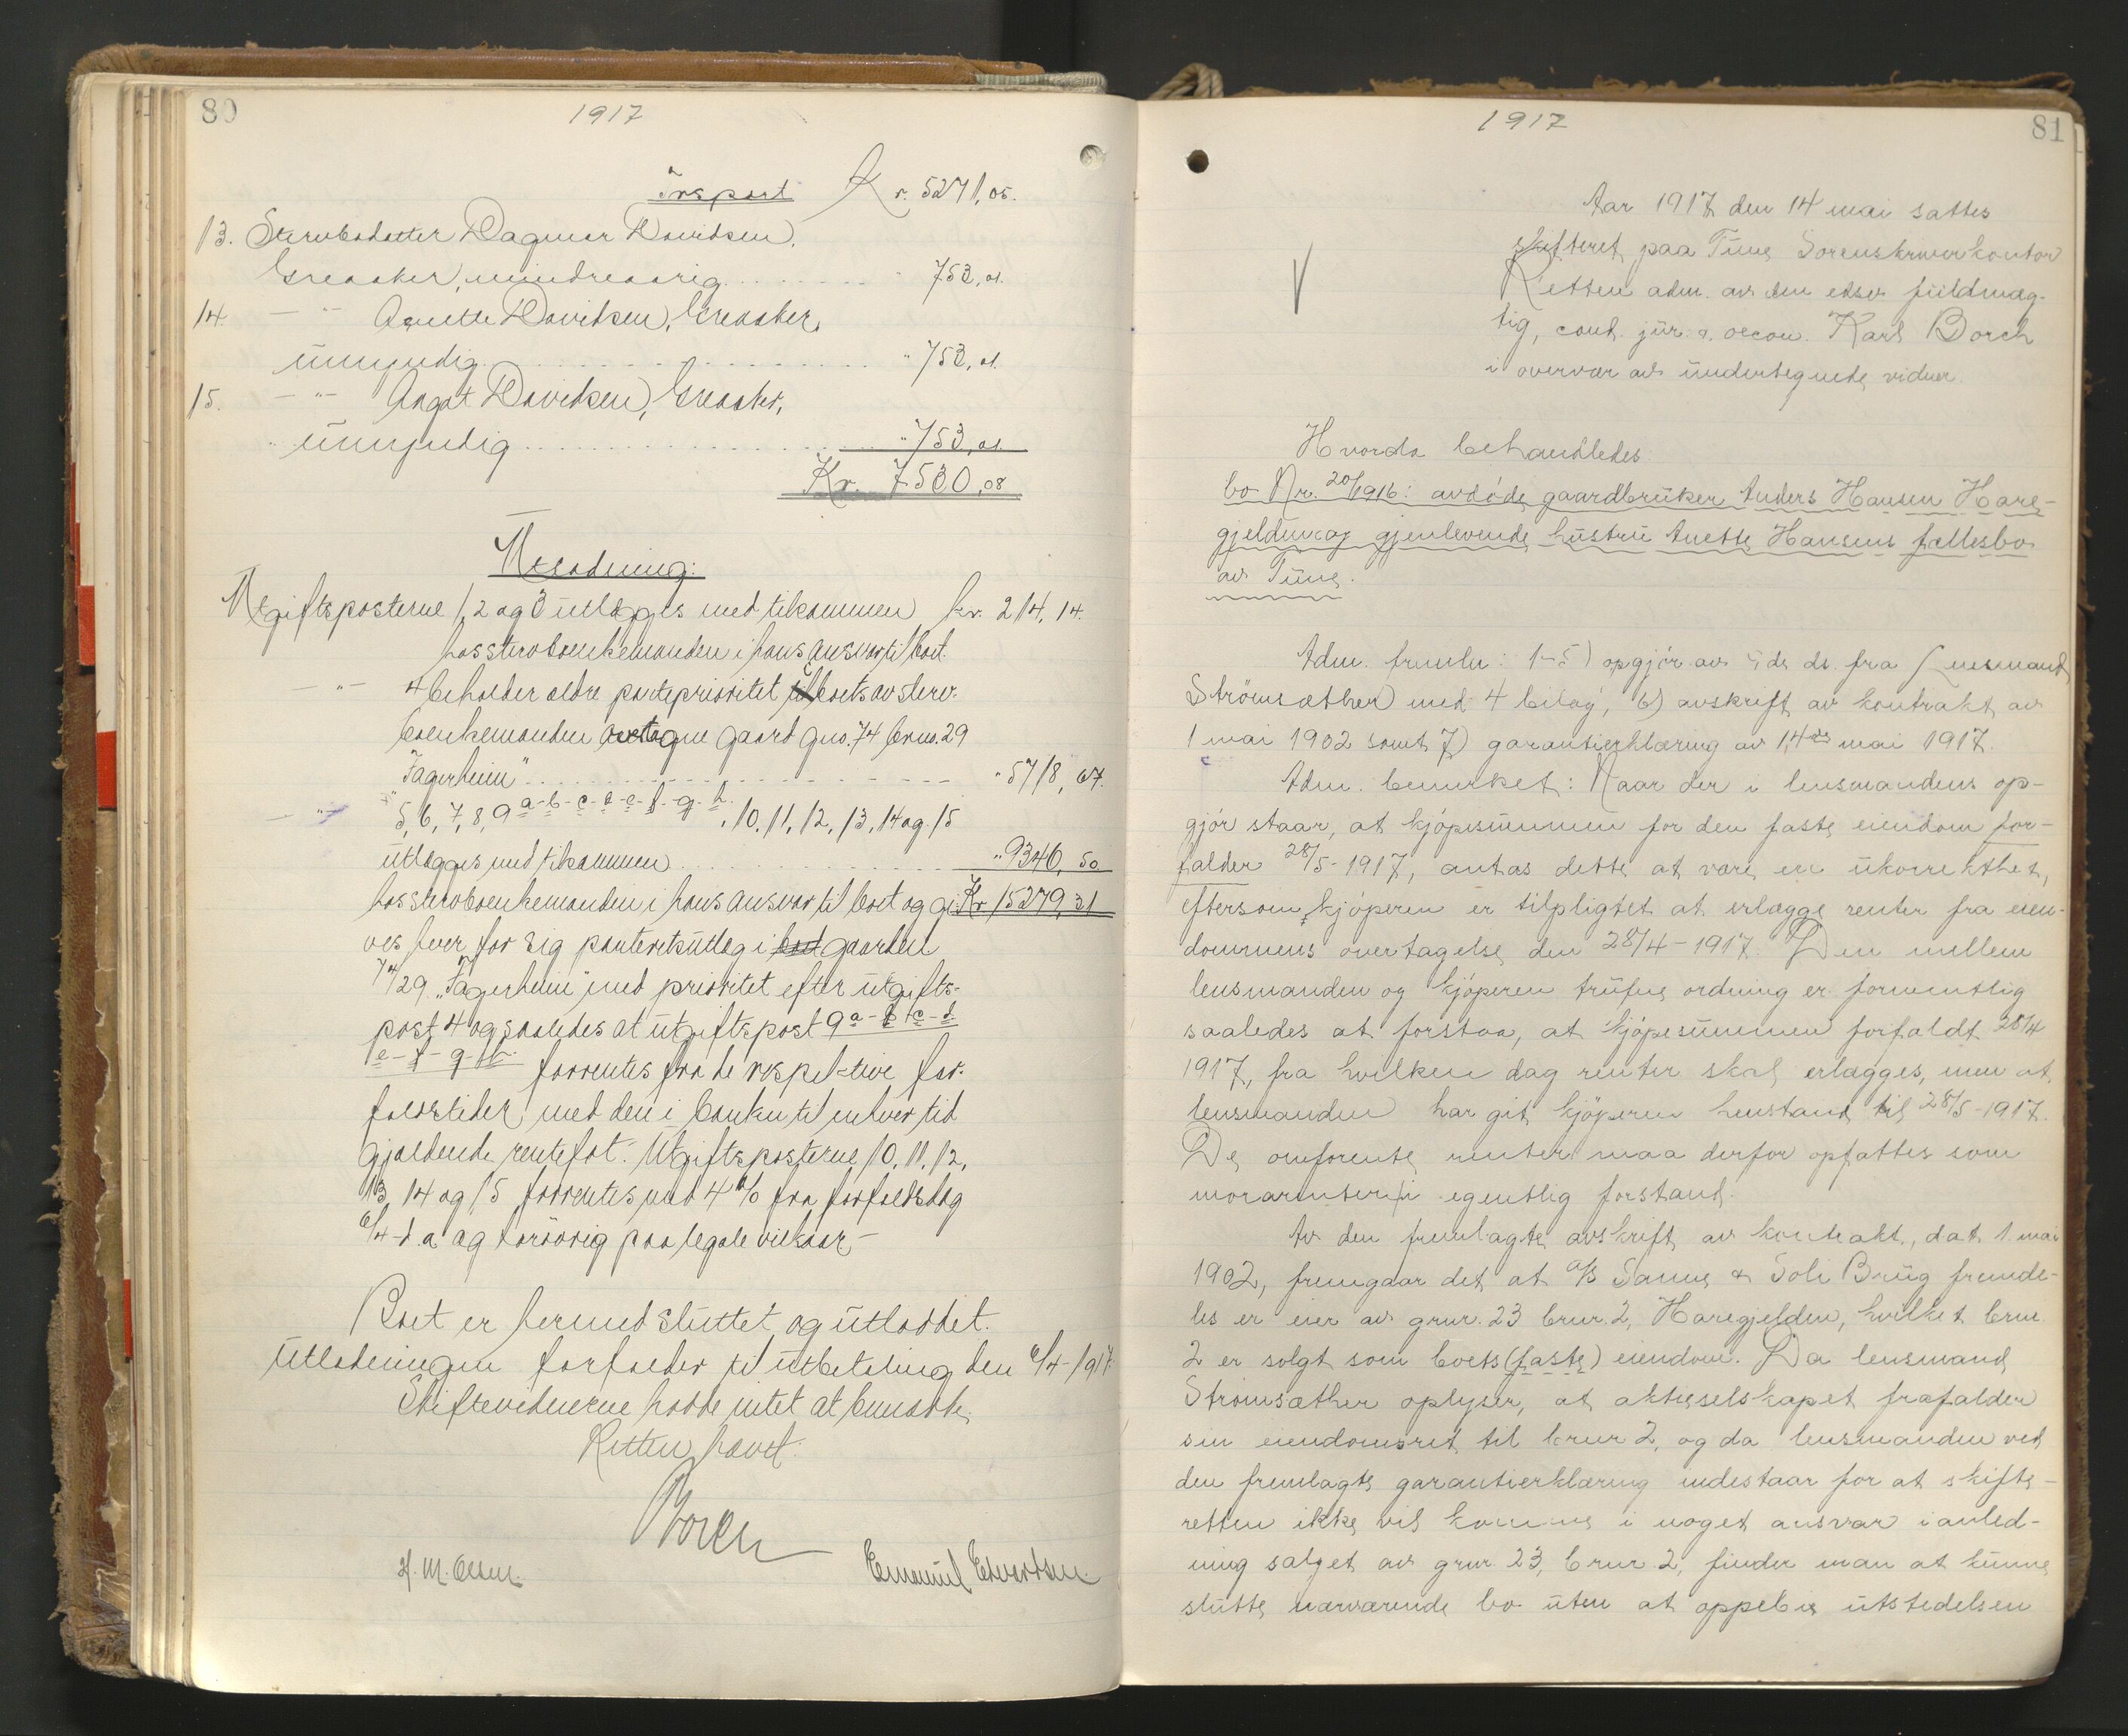 80
1917
Trsport Kr. 5271,05.
13. Stervbodatter Dagmar Davidsen,
Greaaker, mindreaarig. " 753,01.
14. - " - Agnette Davidsen, Greaaker,
umyndig. " 753,01.
15. - " - Aagot Davidsen, Greaaker,
umyndig " 753,01
Kr. 7530,08
Utlodning:
Utgiftsposterne 1, 2 og 3 utlægges med tilkommen kr. 214,14.
hos stervboenkemanden i hans ansvar til boet.
- " - 4 beholder ældre panteprioritet i boets av sterv-
boenkemanden overtagne gaard gno. 74 brno. 29
"Fagerheim" " 5718,67.
- " - 5, 6, 7, 8, 9 a-b-c-d-e-f-g-h, 10, 11, 12, 13, 14 og 15
utlægges med tilkommen " 9346,50
hos stervboenkemanden i hans ansvar til boet og gi- Kr 15279,31
ves hver for sig panteretsutlæg i gaarden
74/29 "Fagerheim" med prioritet efter utgifts-
post 4 og saaledes at utgiftspost 9 a-b-c-d
e-f-g-h forrentes fra de respektive for-
faldstider med den i banken til enhver tid
gjældende rentefot. Utgiftsposterne 10, 11, 12,
13, 14 og 15 forrentes med 4 % fra forfaldsdag
6/4 d.a. og forøvrig paa legale vilkaar. -
Boet er hermed sluttet og utloddet.
Utlodningen forfalder til utbetaling den 6/4-1917.
Skiftevidnerne hadde intet at bemerke.
Retten hævet.
Borch
H. M. Olsen. Emanuel Edvardsen.
81
1917
Aar 1917 den 14 mai sattes
skifteret paa Tune Sorenskriverkontor
Retten adm. av den edsv. fuldmæg-
tig, cand. jur. & oecon. Karl Borch
i overvær av undertegnede vidner.
V
Hvorda behandledes:
bo Nr. 20/1916: avdøde gaardbruker Anders Hansen Hare-
gjelden og gjenlevende hustru Anette Hansens fællesbo
av Tune.
Adm. fremla: 1-5) opgjør av ds. fra lensmand
Strömsæther med 4 bilag, 6) avskrift av kontrakt av
1 mai 1902 samt 7) garantierklæring av 14de mai 1917.
Adm. bemerket: Naar der i lensmandens op-
gjør staar, at kjøpesummen for den faste eiendom for-
falder 28/5-1917, antas dette at være en ukorrekthet,
eftersom kjøperen er tilpligtet at erlægge renter fra eien-
dommens overtagelse den 28/4-1917. Den mellem
lensmanden og kjøperen trufne ordning er formentlig
saaledes at forstaa, at kjøpesummen forfaldt 28/4
1917, fra hvilken dag renter skal erlægges, men at
lensmanden har git kjøperen henstand til 28/5-1917.
De omforente renter maa derfor opfattes som
morarenter i egentlig forstand.
Av den fremlagte avskrift av kontrakt, dat. 1. mai
1902, fremgaar det at A/S Sanne & Soli Brug fremde-
les er eier av gnr. 23 bnr. 2, Haregjelden, hvilket bnr.
2 er solgt som boets (faste) eiendom. Da lensmand
Strømsæther oplyser, at aktieselskapet frafalder
sin eiendomsret til bnr 2, og da lensmanden ved
den fremlagte garantierklæring indestaar for at skifte-
retten ikke vil komme i noget ansvar i anled-
ning salget av gnr. 23, bnr. 2, finder man at kunne
slutte nærværende bo uten at oppebie utstedelsen